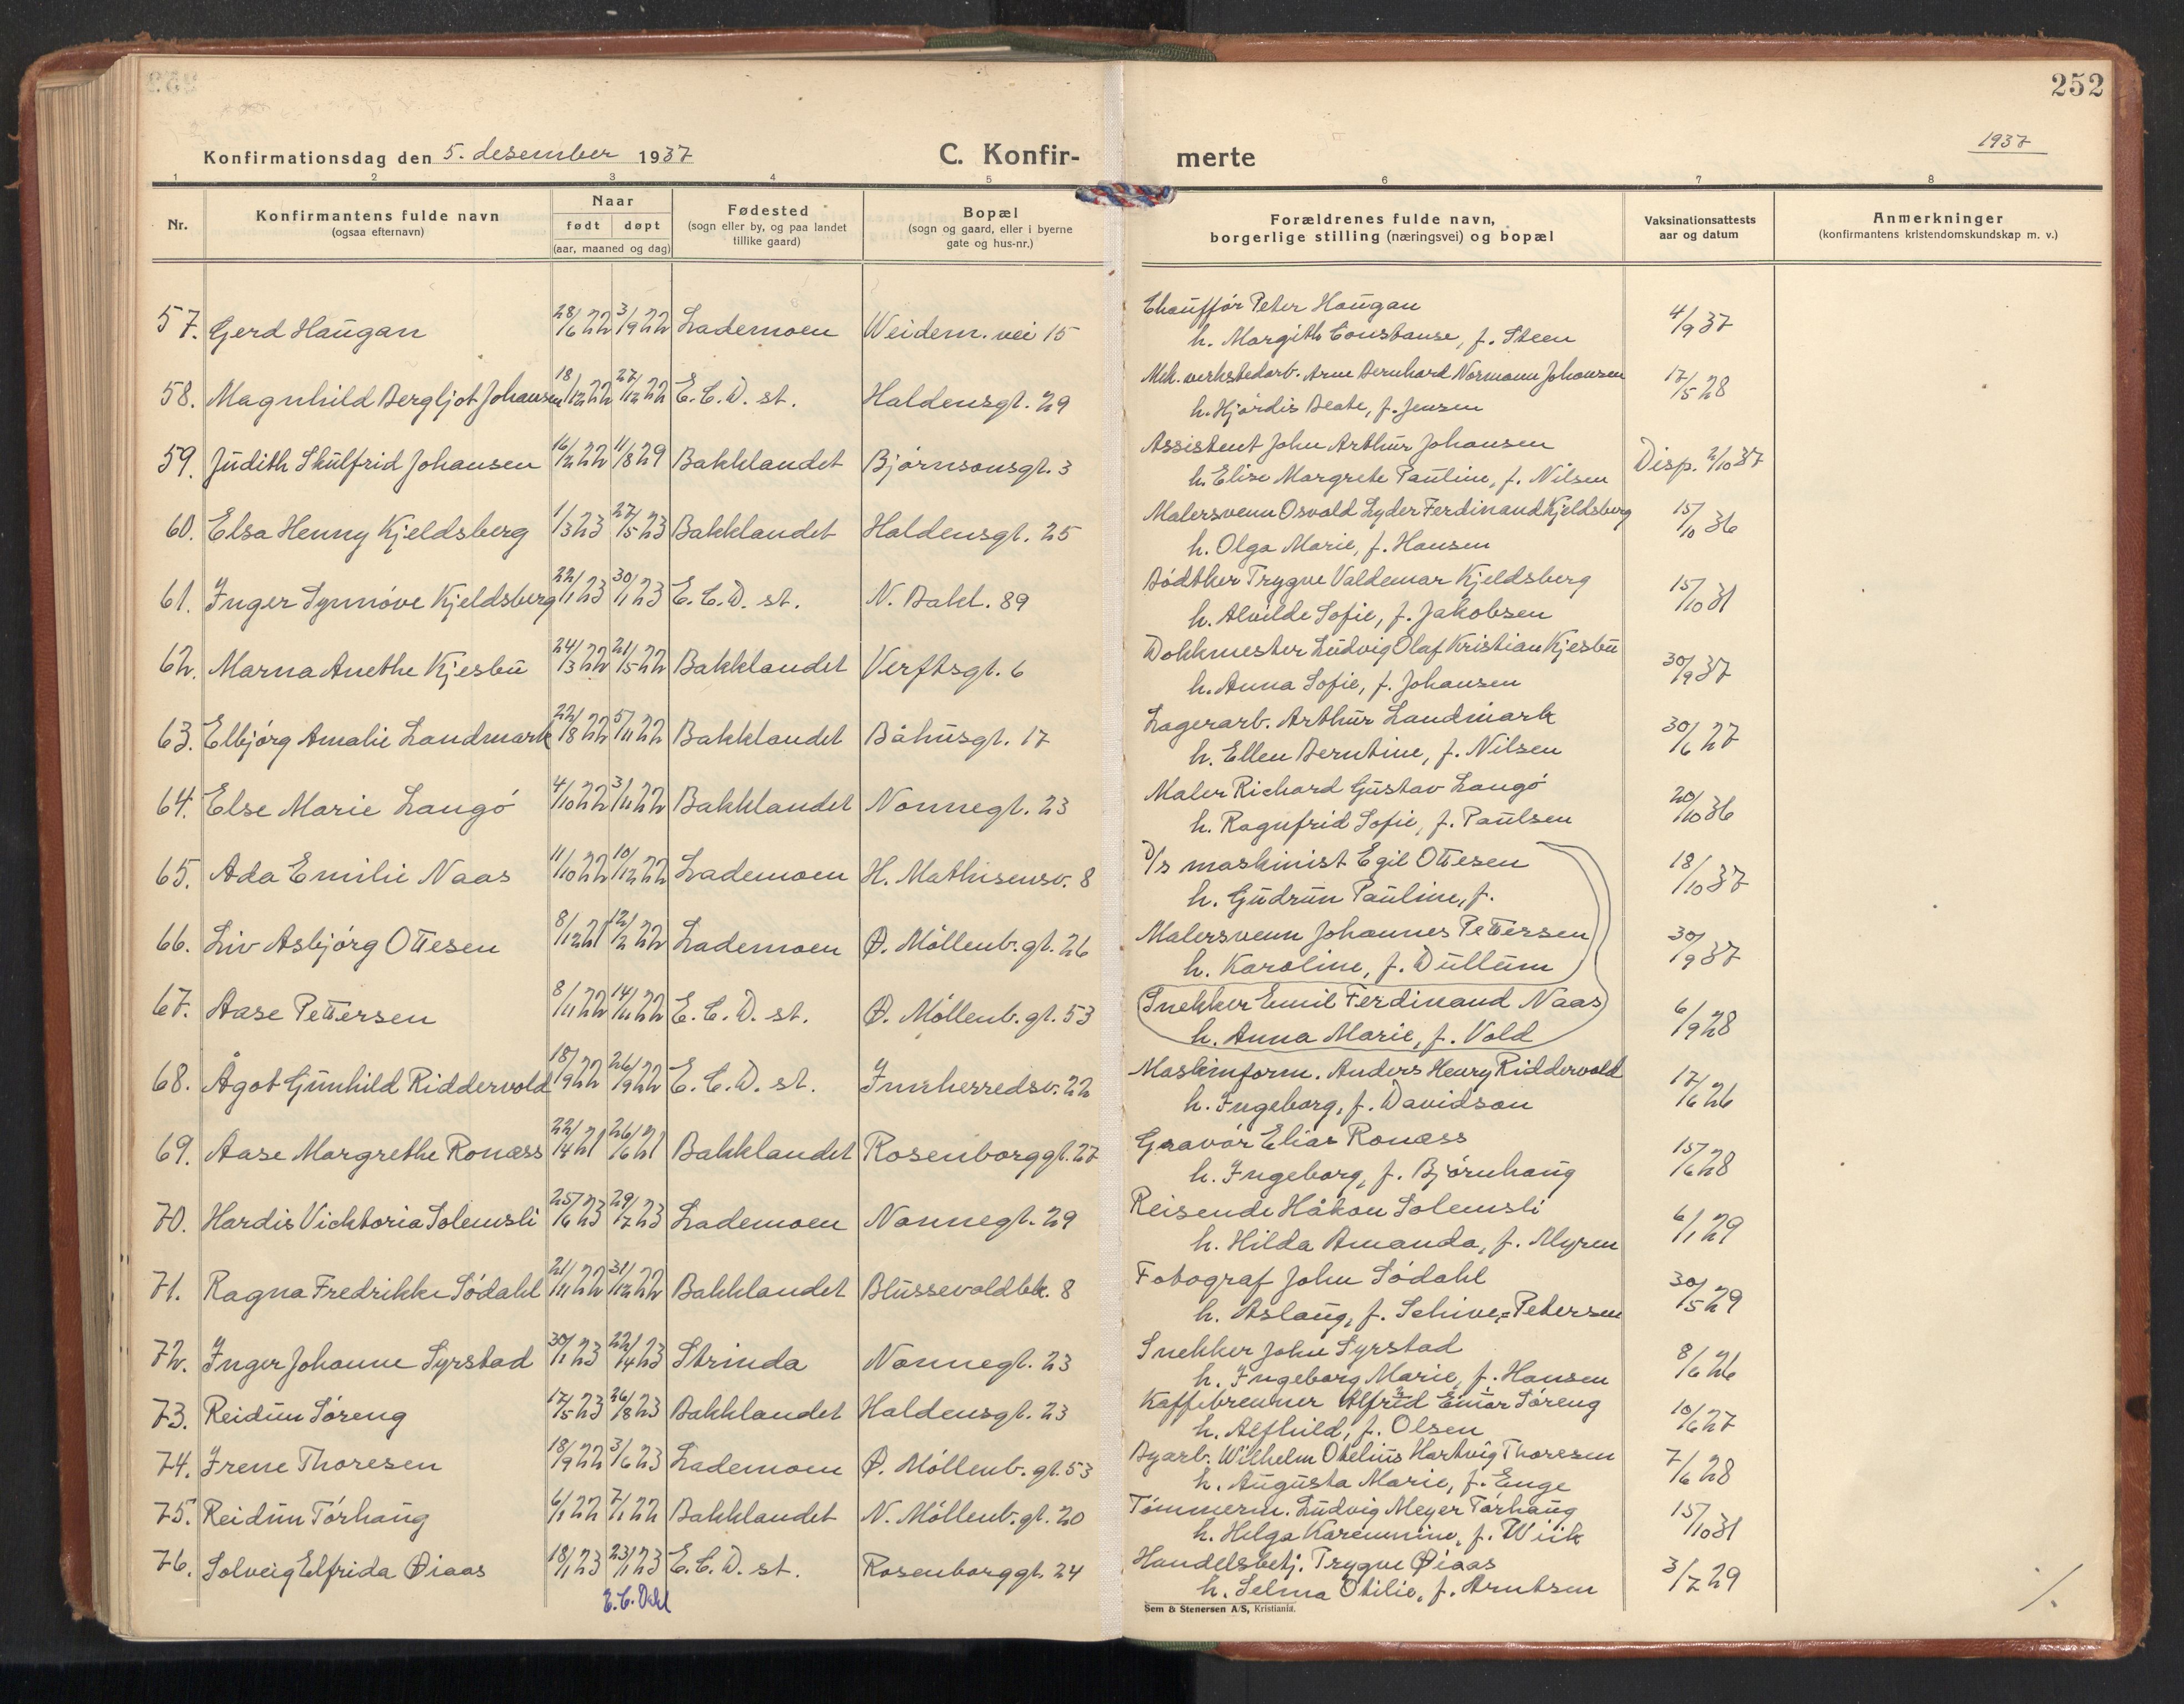 252
Konfirmationsdag den 5. desember 1937
C. Konfir-
merte
1937
1 2 3 4 5 6 7 8
Nr.
Konfirmantens fulde navn
(ogsaa efternavn)
Naar
født døpt
(aar, maaned og dag)
Fødested
(sogn eller by, og paa landet
tillike gaard)
Bopæl
(sogn og gaard, eller i byerne
gate og hus-nr.)
Forældrenes fulde navn,
borgerlige stilling (næringsvei) og bopæl
Vaksinationsattests
aar og datum
Anmerkninger
(konfirmantens kristendomskundskap m. v.)
57. Gerd Haugan 28/6 22 3/9 22 Lademoen Weidem. vei 15 Chauffør Peter Haugan 4/9 37
h. Margith Constanse, f. Steen
58. Magnhild Bergljot Johansen 18/12 22 27/12 22 E.C.D. st. Haldensgt. 29 Mek. verkstedarb. Arne Bernhard Normann Johansen 17/5 28
h. Hjørdis Beate, f. Jensen
59. Judith Skulfrid Johansen 16/12 22 11/8 29 Bakklandet Bjørnsonsgt. 3 Assistent John Arthur Johansen Disp. 2/10 37
h. Elise Margrete Pauline, f. Nilsen
60. Elsa Henny Kjeldsberg 1/3 23 27/5 23 Bakklandet Haldensgt. 25 Malersvenn Osvald Lyder Ferdinand Kjeldsberg 15/10 36
h. Olga Marie, f. Hansen
61. Inger Synnøve Kjeldsberg 22/1 23 30/1 23 E.C.D. st. N. Bakl. 89 Bødtker Trygve Valdemar Kjeldsberg 15/10 31
h. Alvilde Sofie, f. Jakobsen
62. Marna Anethe Kjesbu 24/3 22 21/5 22 Bakklandet Verftsgt. 6 Dokkmester Ludvig Olaf Kristian Kjesbu 30/9 37
h. Anna Sofie, f. Johansen
63. Elbjørg Amalie Landmark 22/8 22 5/11 22 Bakklandet Båhusgt. 17 Lagerarb. Arthur Landmark 30/6 27
h. Ellen Berntine, f. Nilsen
64. Else Marie Langø 4/10 22 3/11 22 Bakklandet Nonnegt. 23 Maler Richard Gustav Langø 20/10 36
h. Ragnfrid Sofie, f. Paulsen
65. Ada Emilie Naas 11/10 22 10/12 22 Lademoen H. Mathisensv. 8 D/s maskinist Egil Ottesen 18/10 37
h. Gudrun Pauline, f.
66. Liv Asbjørg Ottesen 8/12 21 12/2 22 Lademoen Ø. Møllenb. gt. 26 Malersvenn Johannes Pettersen 30/9 37
h. Karoline, f. Dullum
67. Aase Pettersen 8/11 22 14/11 22 E.C.D. st. Ø. Møllenb. gt. 53 Snekker Emil Ferdinand Naas 6/9 28
h. Anna Marie, f. Vold
68. Ågot Gunhild Riddervold 18/9 22 26/9 22 E.C.D. st. Innherredsv. 22 Maskinform. Anders Henry Riddervold 17/6 26
h. Ingeborg, f. Davidson
69. Aase Margrethe Ronæss 22/4 21 26/6 21 Bakklandet Rosenborggt. 27 Gravør Elias Ronæss 15/6 28
h. Ingeborg, f. Bjørnhaug
70. Hardis Vicktoria Solemsli 25/6 23 29/7 23 Lademoen Nonnegt. 29 Reisende Håkon Solemsli 6/1 29
h. Hilda Amanda, f. Myren
71. Ragna Fredrikke Sødahl 21/11 22 31/12 22 Bakklandet Blussevoldbk. 8 Fotograf John Sødahl 30/5 29
h. Aslaug, f. Schive=Petersen
72. Inger Johanne Syrstad 30/1 23 22/4 23 Strinda Nonnegt. 23 Snekker John Syrstad 8/6 26
h. Ingeborg Marie, f. Hansen
73. Reidun Søreng 17/5 23 26/8 23 Bakklandet Haldensgt. 23 Kaffebrenner Alfred Einar Søreng 10/6 27
h. Alfhild, f. Olsen
74. Irene Thoresen 18/9 22 3/6 23 Lademoen Ø. Møllenb. gt. 53 Byarb. Wilhelm Otelius Hartvig Thoresen 7/6 28
h. Augusta Marie, f. Enge
75. Reidun Tørhaug 6/1 22 7/1 22 Bakklandet N. Møllenb. gt. 20 Tømmerm. Ludvig Meyer Tørhaug 15/10 31
h. Helga Karemmine, f. Wiik
76. Solveig Elfrida Øiaas 18/1 23 23/1 23 E.C.D. st. Rosenborggt. 24 Handelsbetj. Trygve Øiaas 3/7 29
h. Selma Otilie, f. Arntsen
E.C. Dahl
Sem & Stenersen A/S, Kristiania.